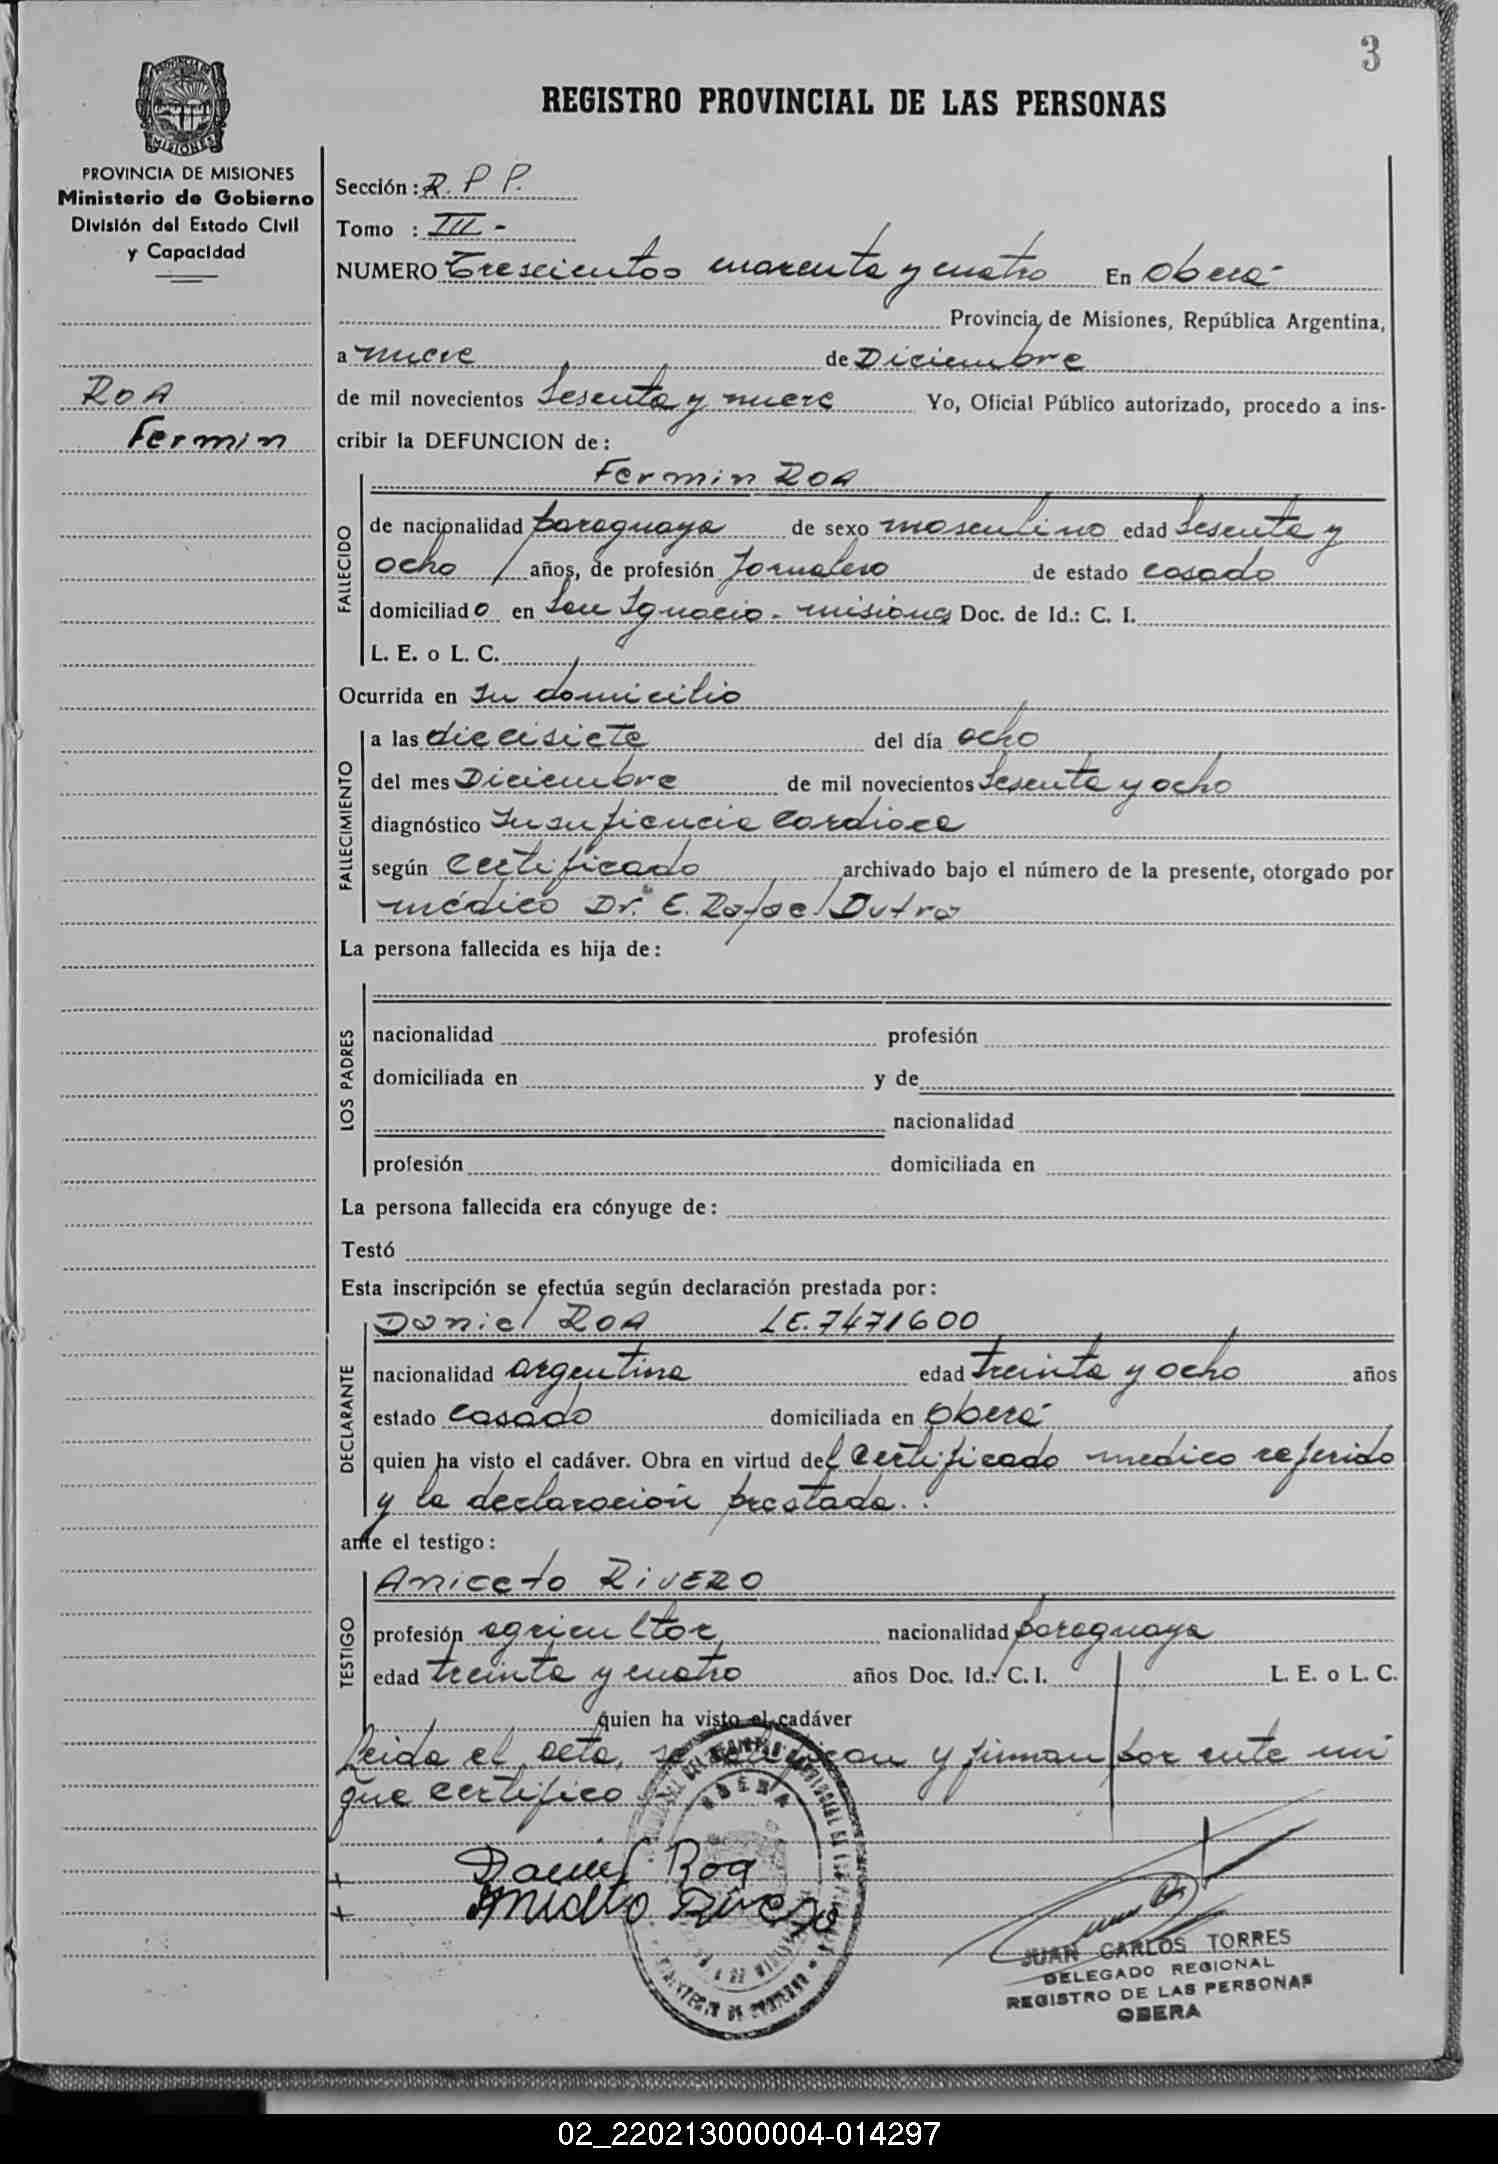 3
PROVINCIA DE MISIONES
REGISTRO PROVINCIAL DE LAS PERSONAS
PROVINCIA DE MISIONES
Ministerio de Gobierno
División del Estado Civil
y Capacidad
ROA
Fermin
Sección: R. P P.
Tomo : III -
NUMERO Trescientos cuarenta y cuatro En Oberá
Provincia de Misiones, República Argentina,
a nueve de Diciembre
de mil novecientos Sesenta y nueve Yo, Oficial Público autorizado, procedo a ins-
cribir la DEFUNCION de:
Fermin ROA
FALLECIDO
de nacionalidad paraguaya de sexo masculino edad Sesenta y
ocho años, de profesión Jornalero de estado casado
domiciliado en San Ignacio - misiones Doc. de Id.: C. I.
L. E. o L. C.
Ocurrida en su domicilio
FALLECIMIENTO
a las diecisiete del día ocho
del mes Diciembre de mil novecientos Sesenta y ocho
diagnóstico Insuficiencia Cardiaca
según Certificado archivado bajo el número de la presente, otorgado por
médico Dr. E. Rafael Dutra
La persona fallecida es hija de:
LOS PADRES
nacionalidad profesión
domiciliada en y de
nacionalidad
profesión domiciliada en
La persona fallecida era cónyuge de:
Testó
Esta inscripción se efectúa según declaración prestada por:
DECLARANTE
Daniel ROA LE. 7471600
nacionalidad argentina edad treinta y ocho años
estado casado domiciliada en Oberá
quien ha visto el cadáver. Obra en virtud del Certificado medico referido
y la declaración prestada.
ante el testigo:
TESTIGO
Aniceto RIVERO
profesión agricultor nacionalidad paraguaya
edad treinta y cuatro años Doc. Id.: C. I. L. E. o L. C.
quien ha visto el cadáver
Leida el acta, se ratifican y firman por ante mi
que certifico
Daniel Roa
JUAN CARLOS TORRES
DELEGADO REGIONAL
REGISTRO DE LAS PERSONAS
OBERA
02_220213000004-014297